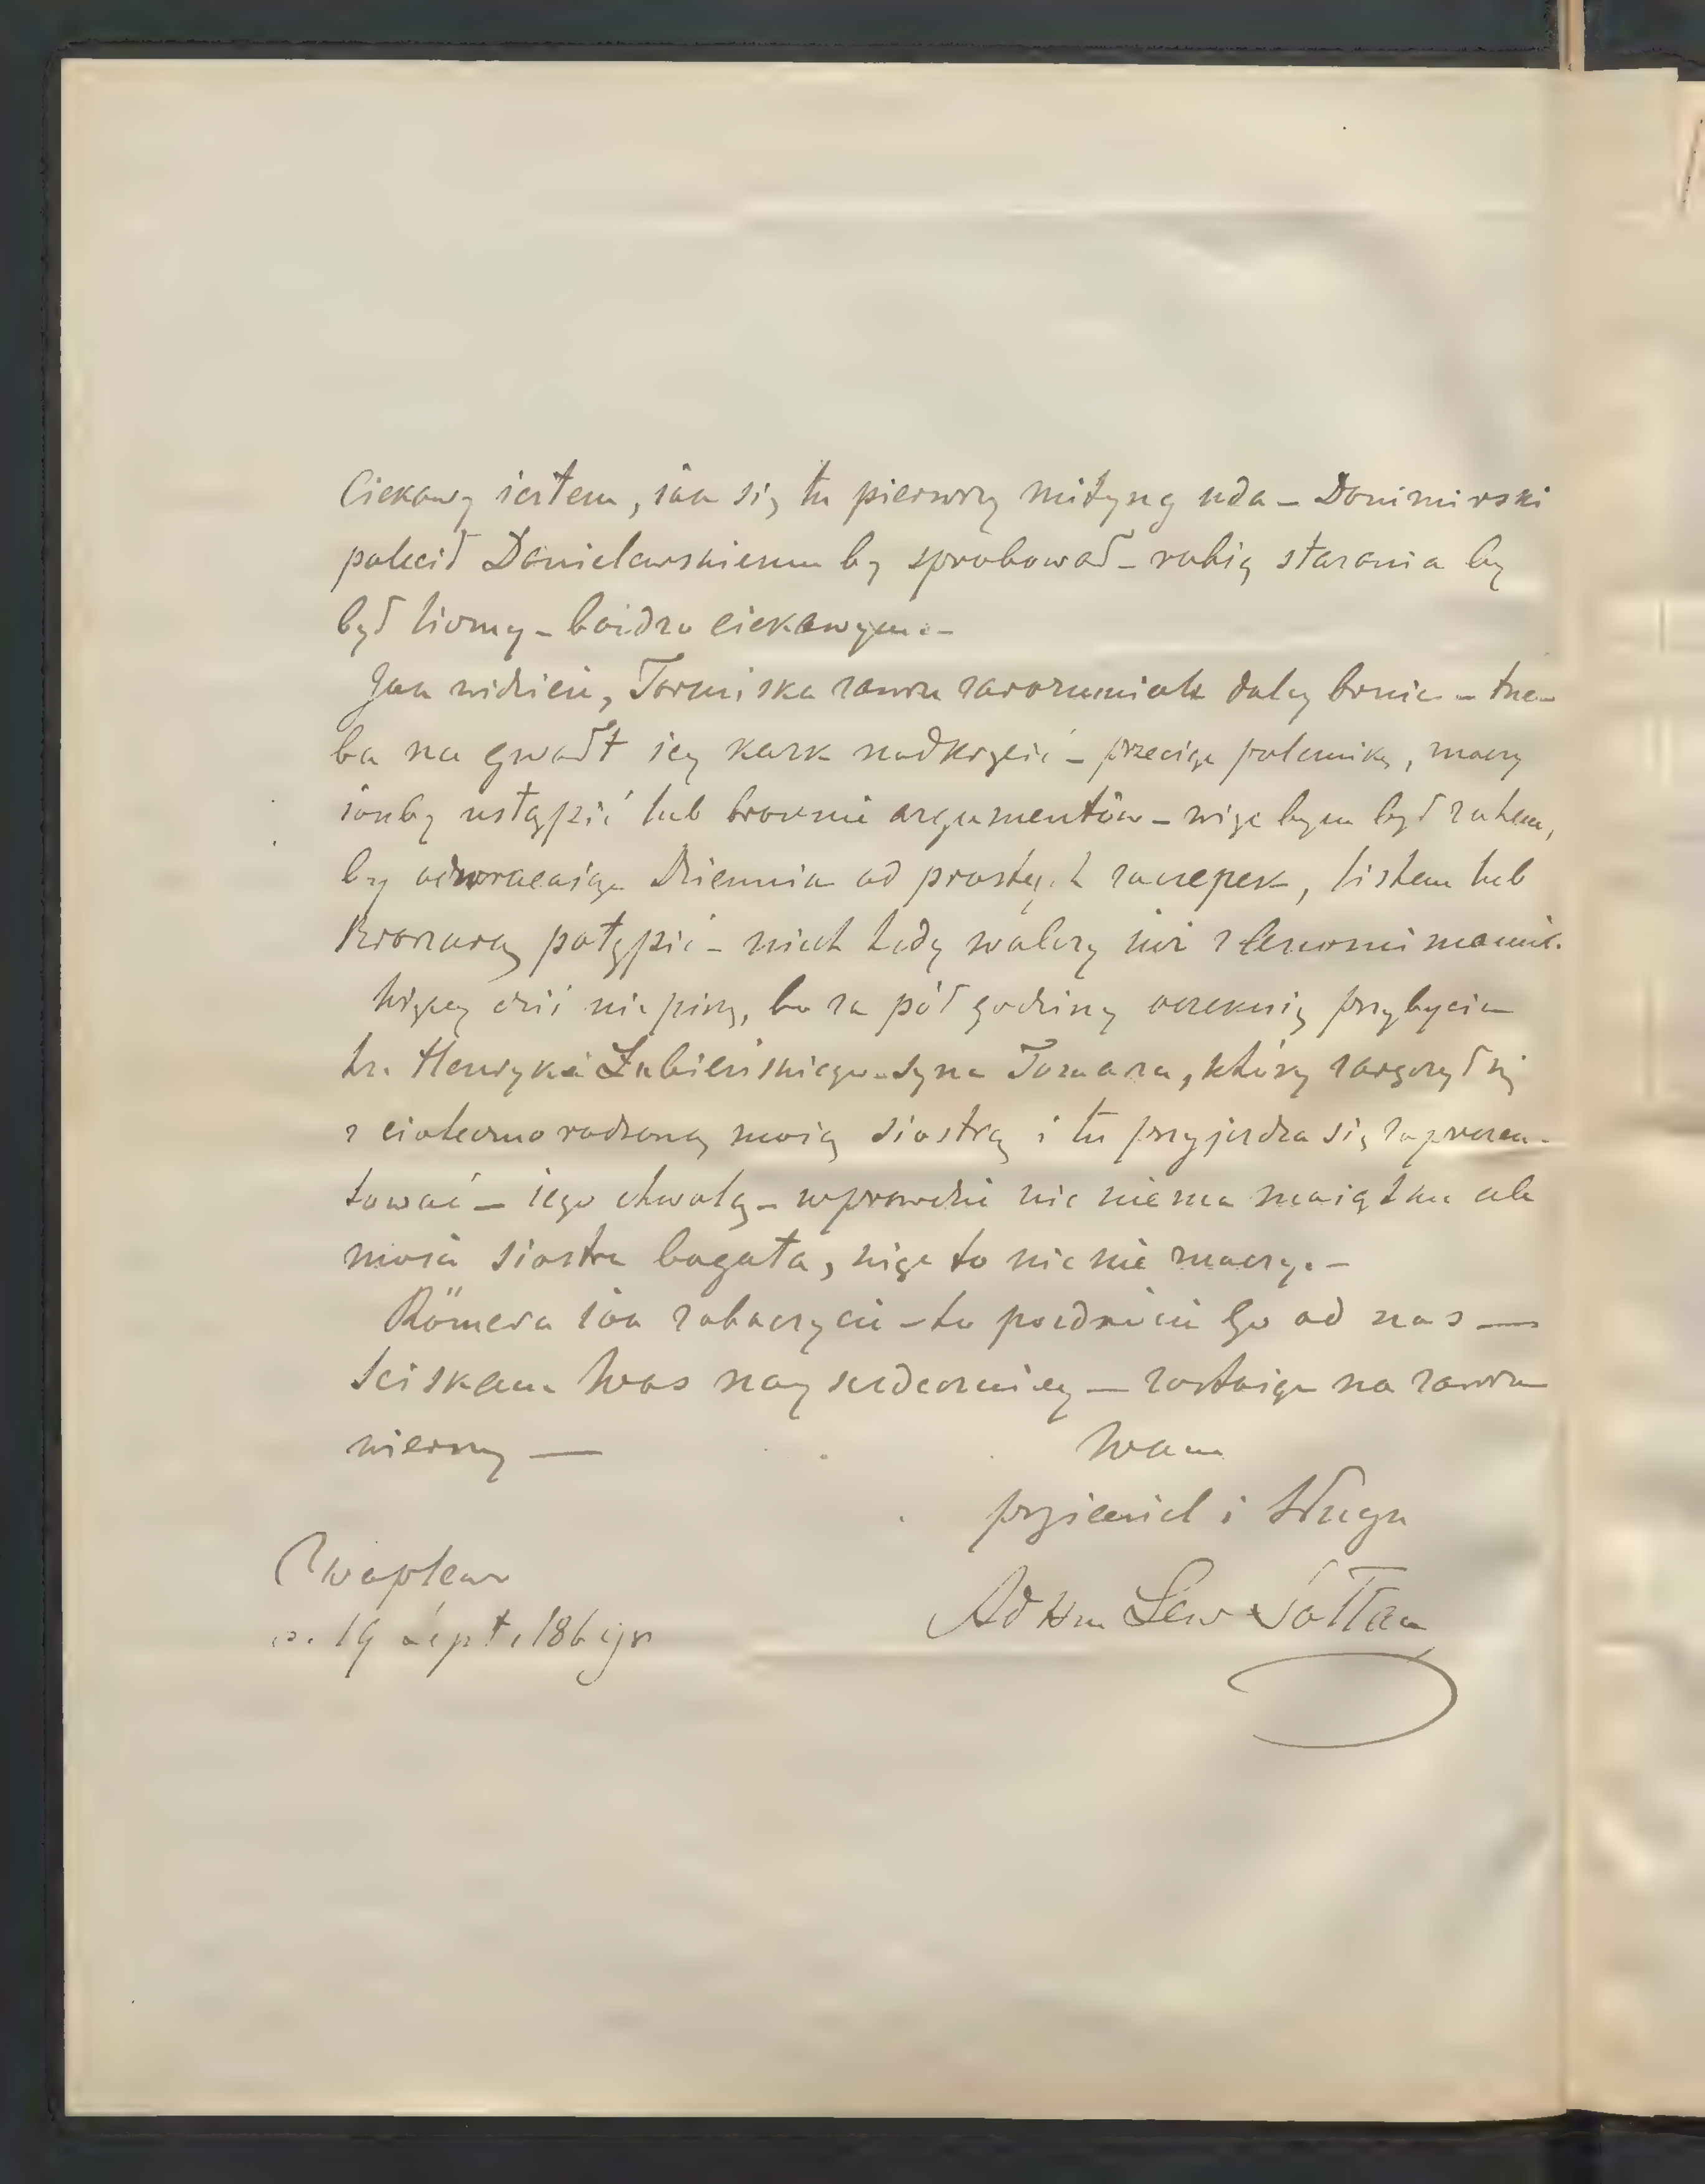 Ciekawy iestem, iak się tu pierwszy mityng uda – Donimirski
polecił Danielewskiemu by sprobował – robię starania by
był liczny – bardzo ciekawym. –
Jak widzicie, Toruńska zawsze zarozumiale daley brnie – trze-
ba na gwałt iey kark nadkręcić – przeciąć polemikę, znaczy
iakby ustąpić lub braknie argumentów – więc bym był zatem,
by odwracaiąc Dziennik od prostych zaczepek, listem lub
broszurą potępić – niech tedy walczy iuż z
Więcey dziś nie piszę, bo za pół godziny oczekuię przybycia
hr. Henryka Łubieńskiego syna Tomasza, który zaręczył się
z cioteczno rodzoną moią siostrą i tu przyjeżdza się zaprezen-
tować – iego chwalą – wprawdzie nic niema maiątku ale
moia siostra bogata, więc to nic nie znaczy. –
Römera iak zobaczycie – to pozdrówcie Go od nas —
Sciskam Was nayserdeczniey — zostaiąc na zawsze
wierny — Wam
przyiaciel i sługa
Adam Lew Sołtan
Zwaplewa
d. 19 Sept. 186